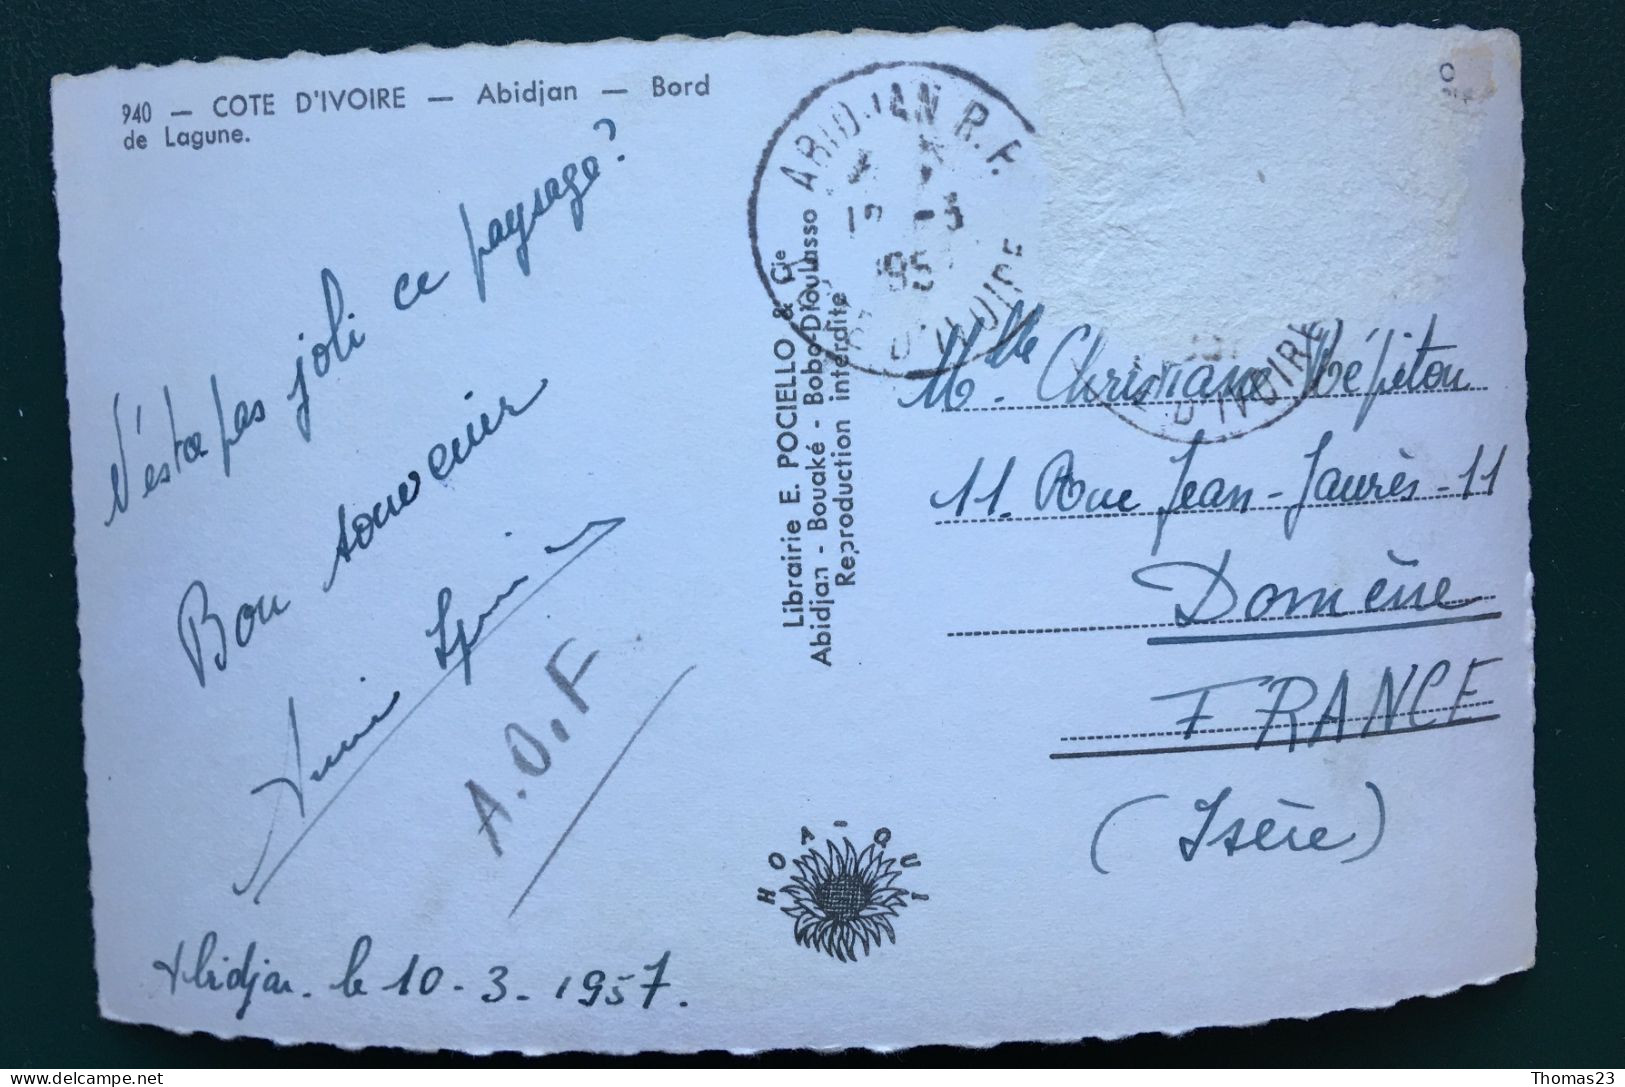 940 — COTE D'IVOIRE — Abidjan — Bord
de Lagune.
N'est ce pas joli ce paysage?
Bon souvenir
A.O.F
Abidjan. le 10-3-1957.
Librairie E. POCIELLO & Cie
Abidjan - Bouaké - Bobo-Dioulasso
Reproduction interdite
HO7IQUI
ABIDJAN R.P.
12 -3
195
CÔTE D'IVOIRE
D'IVOIRE
Mlle. Christiane Mépiton
11. Rue Jean-Jaurès-11
Domène
FRANCE
(Isère)
Thomas23